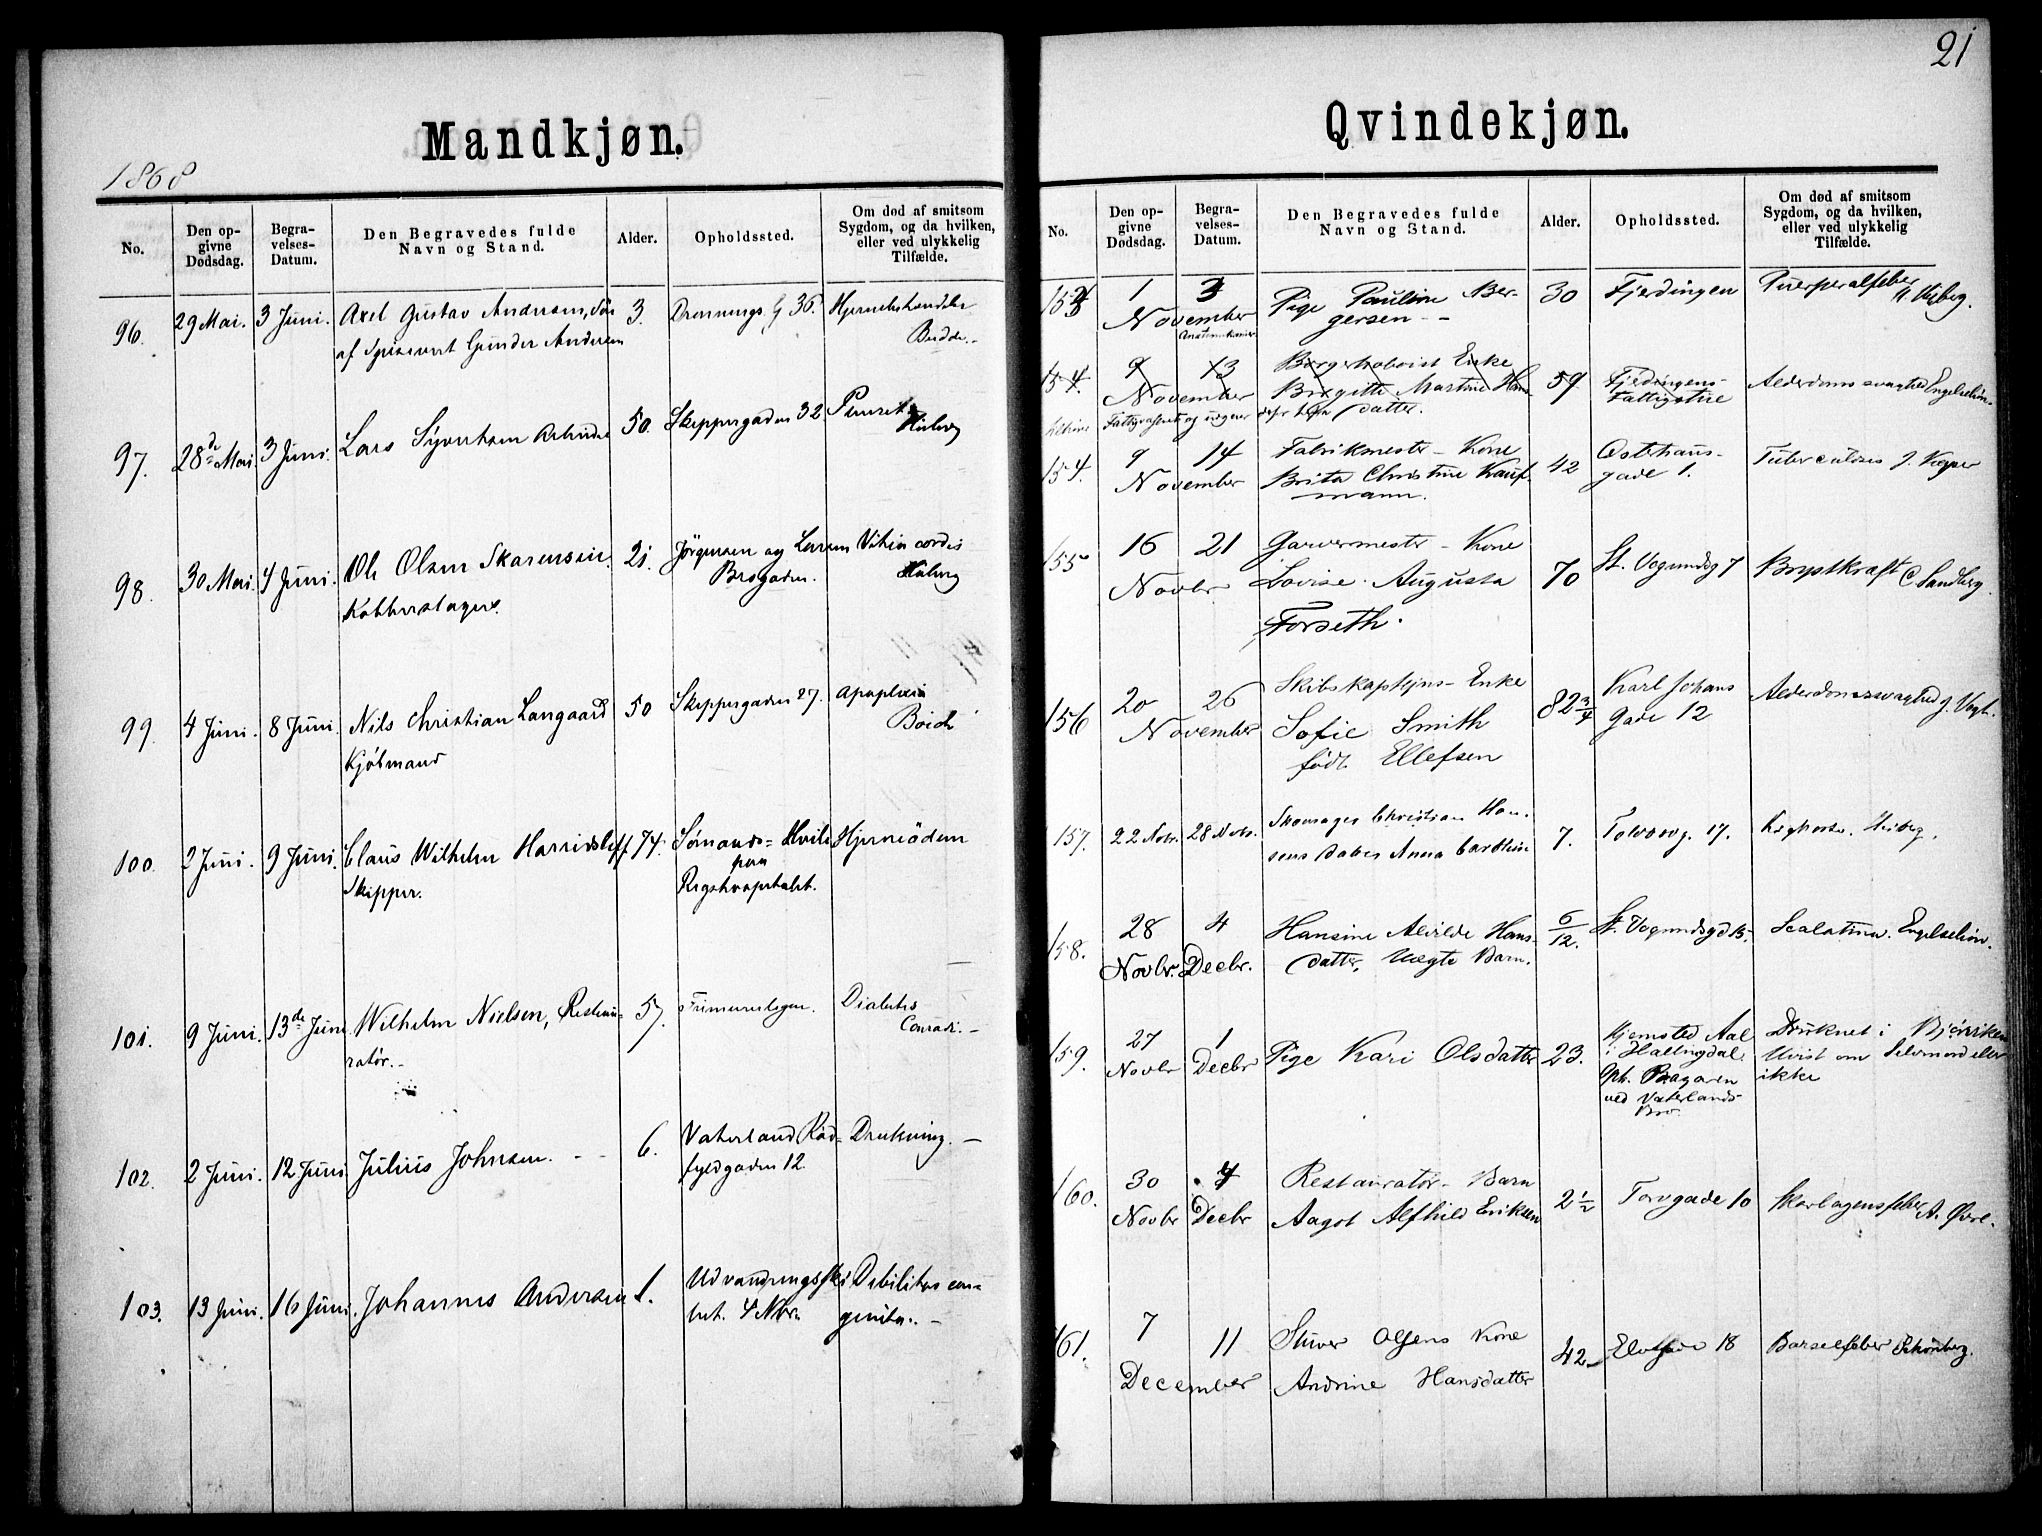 21
Mandkjøn.
1868
No.
Den op-
givne
Dødsdag.
Begra-
velses-
Datum.
Den Begravedes fulde
Navn og Stand.
Alder.
Opholdssted.
Om død af smitsom
Sygdom, og da hvilken,
eller ved ulykkelig
Tilfælde.
96. 29 Mai. 3 Juni. Axel Gustav Andersen, Søn 3. Dronnings. G 36.
af Spisevert Gunder Andersen Budde.-
97. 28de Mai. 3 Juni. Lars Syvertsen Arbeider 50. Skippergaden 32
98. 30 Mai. 4 Juni. Ole Olsen Skarensen. 21. Jörgensen og Larsen Vitium cordis
Kobberslager. Brogaden.
99. 4 Juni. 8 Juni. Nils Christian Langaard 50 Skippergaden 27. Apoplexia
Kjøbmand Boich
100. 2 Juni. 9 Juni. Claus Wilhelm Harridsleff 74. Sømands= Hvile Hjerneödem
Skipper. paa
Rigshospitalet.
101. 9 Juni. 13de Juni Wilhelm Nielsen, Restau- 57. Frimurerlogen. Diabetes
ratör.- Conradi.-
102. 2 Juni. 12 Juni Julius Johnsen. - - 6. Vaterland Rød- Drukning. -
fyldgaden 12.
103. 13 Juni. 16 Juni. Johannes Andersen 1. Debilitas con-
genita. -
Qvindekjøn.
No.
Den op-
givne
Dødsdag.
Begra-
velses-
Datum.
Den Begravedes fulde
Navn og Stand.
Alder.
Opholdssted.
Om død af smitsom
Sygdom, og da hvilken,
eller ved ulykkelig
Tilfælde.
153 1 3 Pige Pauline Ber- 30 Fjerdingen Puerperalfeber
November gersen - -
154 9 13 Enke
November Birgitte Martine Han- 59 Fjerdingens- Alderdomssvaghed Engelschiøn.
datter. Fattigstue
154. 9 14 Fabrikmester - Kone 42 Tuberculosis J. Kayser
November Brita Christine Kauf- gade 1.
mann.
155 16 21 Garvermester - Kone 70 St. Vognmdsg 7 Brystkræft C. Sandberg.
Novbr Lovise Augusta
Forseth.
156 20 26 Skibskaptjns- Enke 82 3/4 Karl Johans Alderdomssvaghed J. Vogt.
November Sofie Smith Gade 12
født Ellefsen
157. 22 Novbr. 28 Novbr. Skomager Christian Han- 7. Torvvog. 17. Kighoste. Heiberg.
sens Datter Anna Cathrine
158. 28 4 Hansine Alvilde Hans- 6/12. Scalatina. Engelschiøn.
Novbr. Decbr. datter, Uægte Barn.
159. 27 1 Pige Kari Olsdatter 23. Hjemsted Aal Druknet i Bjørviken
Novbr Decbr i Hallingdal. Uvist om Selvmord eller
Oph. ikke
ved Vaterlands-
Bro.
160. 30 7 Restauratør - Barn 2 1/2 Torvgade 10 Skarlagensfeber
Novbr Decbr Aagot Alfhild Eriksen
161. 7 11 Stuer Olsens Kone 42 Elvegade 18 Barselfeber Schönberg.
December Andrine Hansdatter